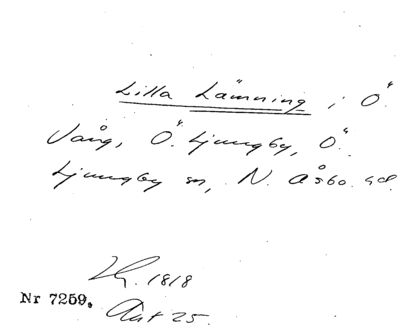 Lilla Lämning i Ö.
Vång, Ö. Ljungby, Ö.
Ljungby sn, N. Åsbo hd.
1818
Nr 7259. Akt 25.